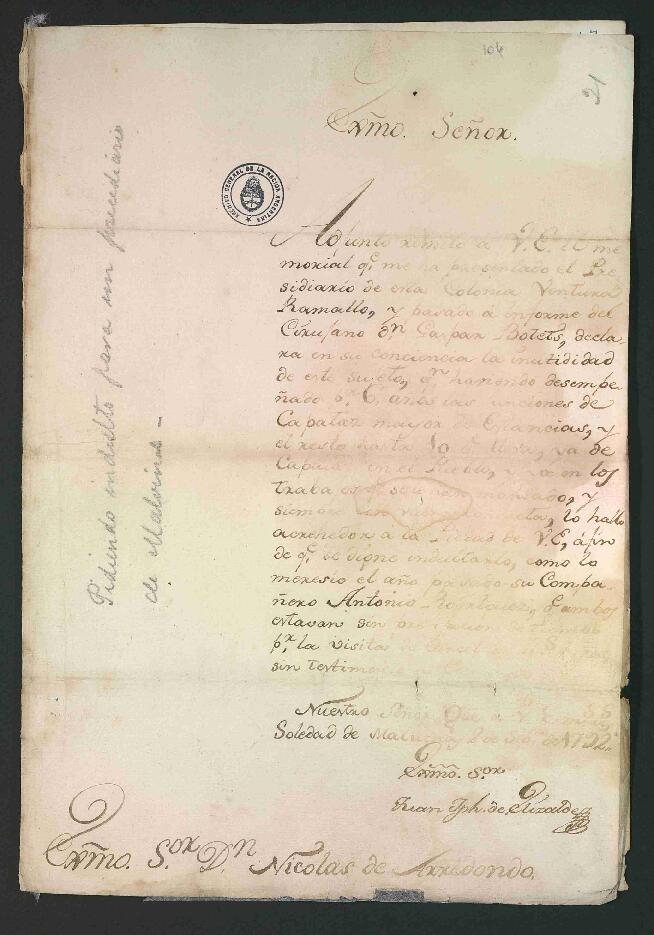 104
21
Exmo. Señor.
ARCHIVO GENERAL DE LA NACION ARGENTINA
Pidiendo indulto para un presidiario
de Malvinas -
Adjunto remito a V.E. el me
morial q.e me ha presentado el Pre
sidiario de esta Colonia Ventura
Ramallo, y pasado a informe del
Cirujano d.n Gaspar Bolets, decla
ra en su conciencia la inutilidad
de este sujeto, q.n haviendo desempe
ñado p.r 6. años las funciones de
Capataz mayor de Estancias, y
el resto hasta 10 q.e lleva, ya de
en el Pueblo, y ya en los
trabajos q.e se mandado, y
siempre lo hallo
acrehedor a la Piedad de V.E, á fin
de q.e se digne indultarlo, como lo
meresio el año pasado su Compa
ñero Antonio Rodriguez, q.e ambos
estavan sin
p.r la Visita de Carcel
sin testimonio
Nuestro Señor Que a V.E.
Soledad de Malvinas 1792.
Exmo. S.or
Juan Jph. de Elizalde
Exmo. S.or D.n Nicolas de Arredondo.